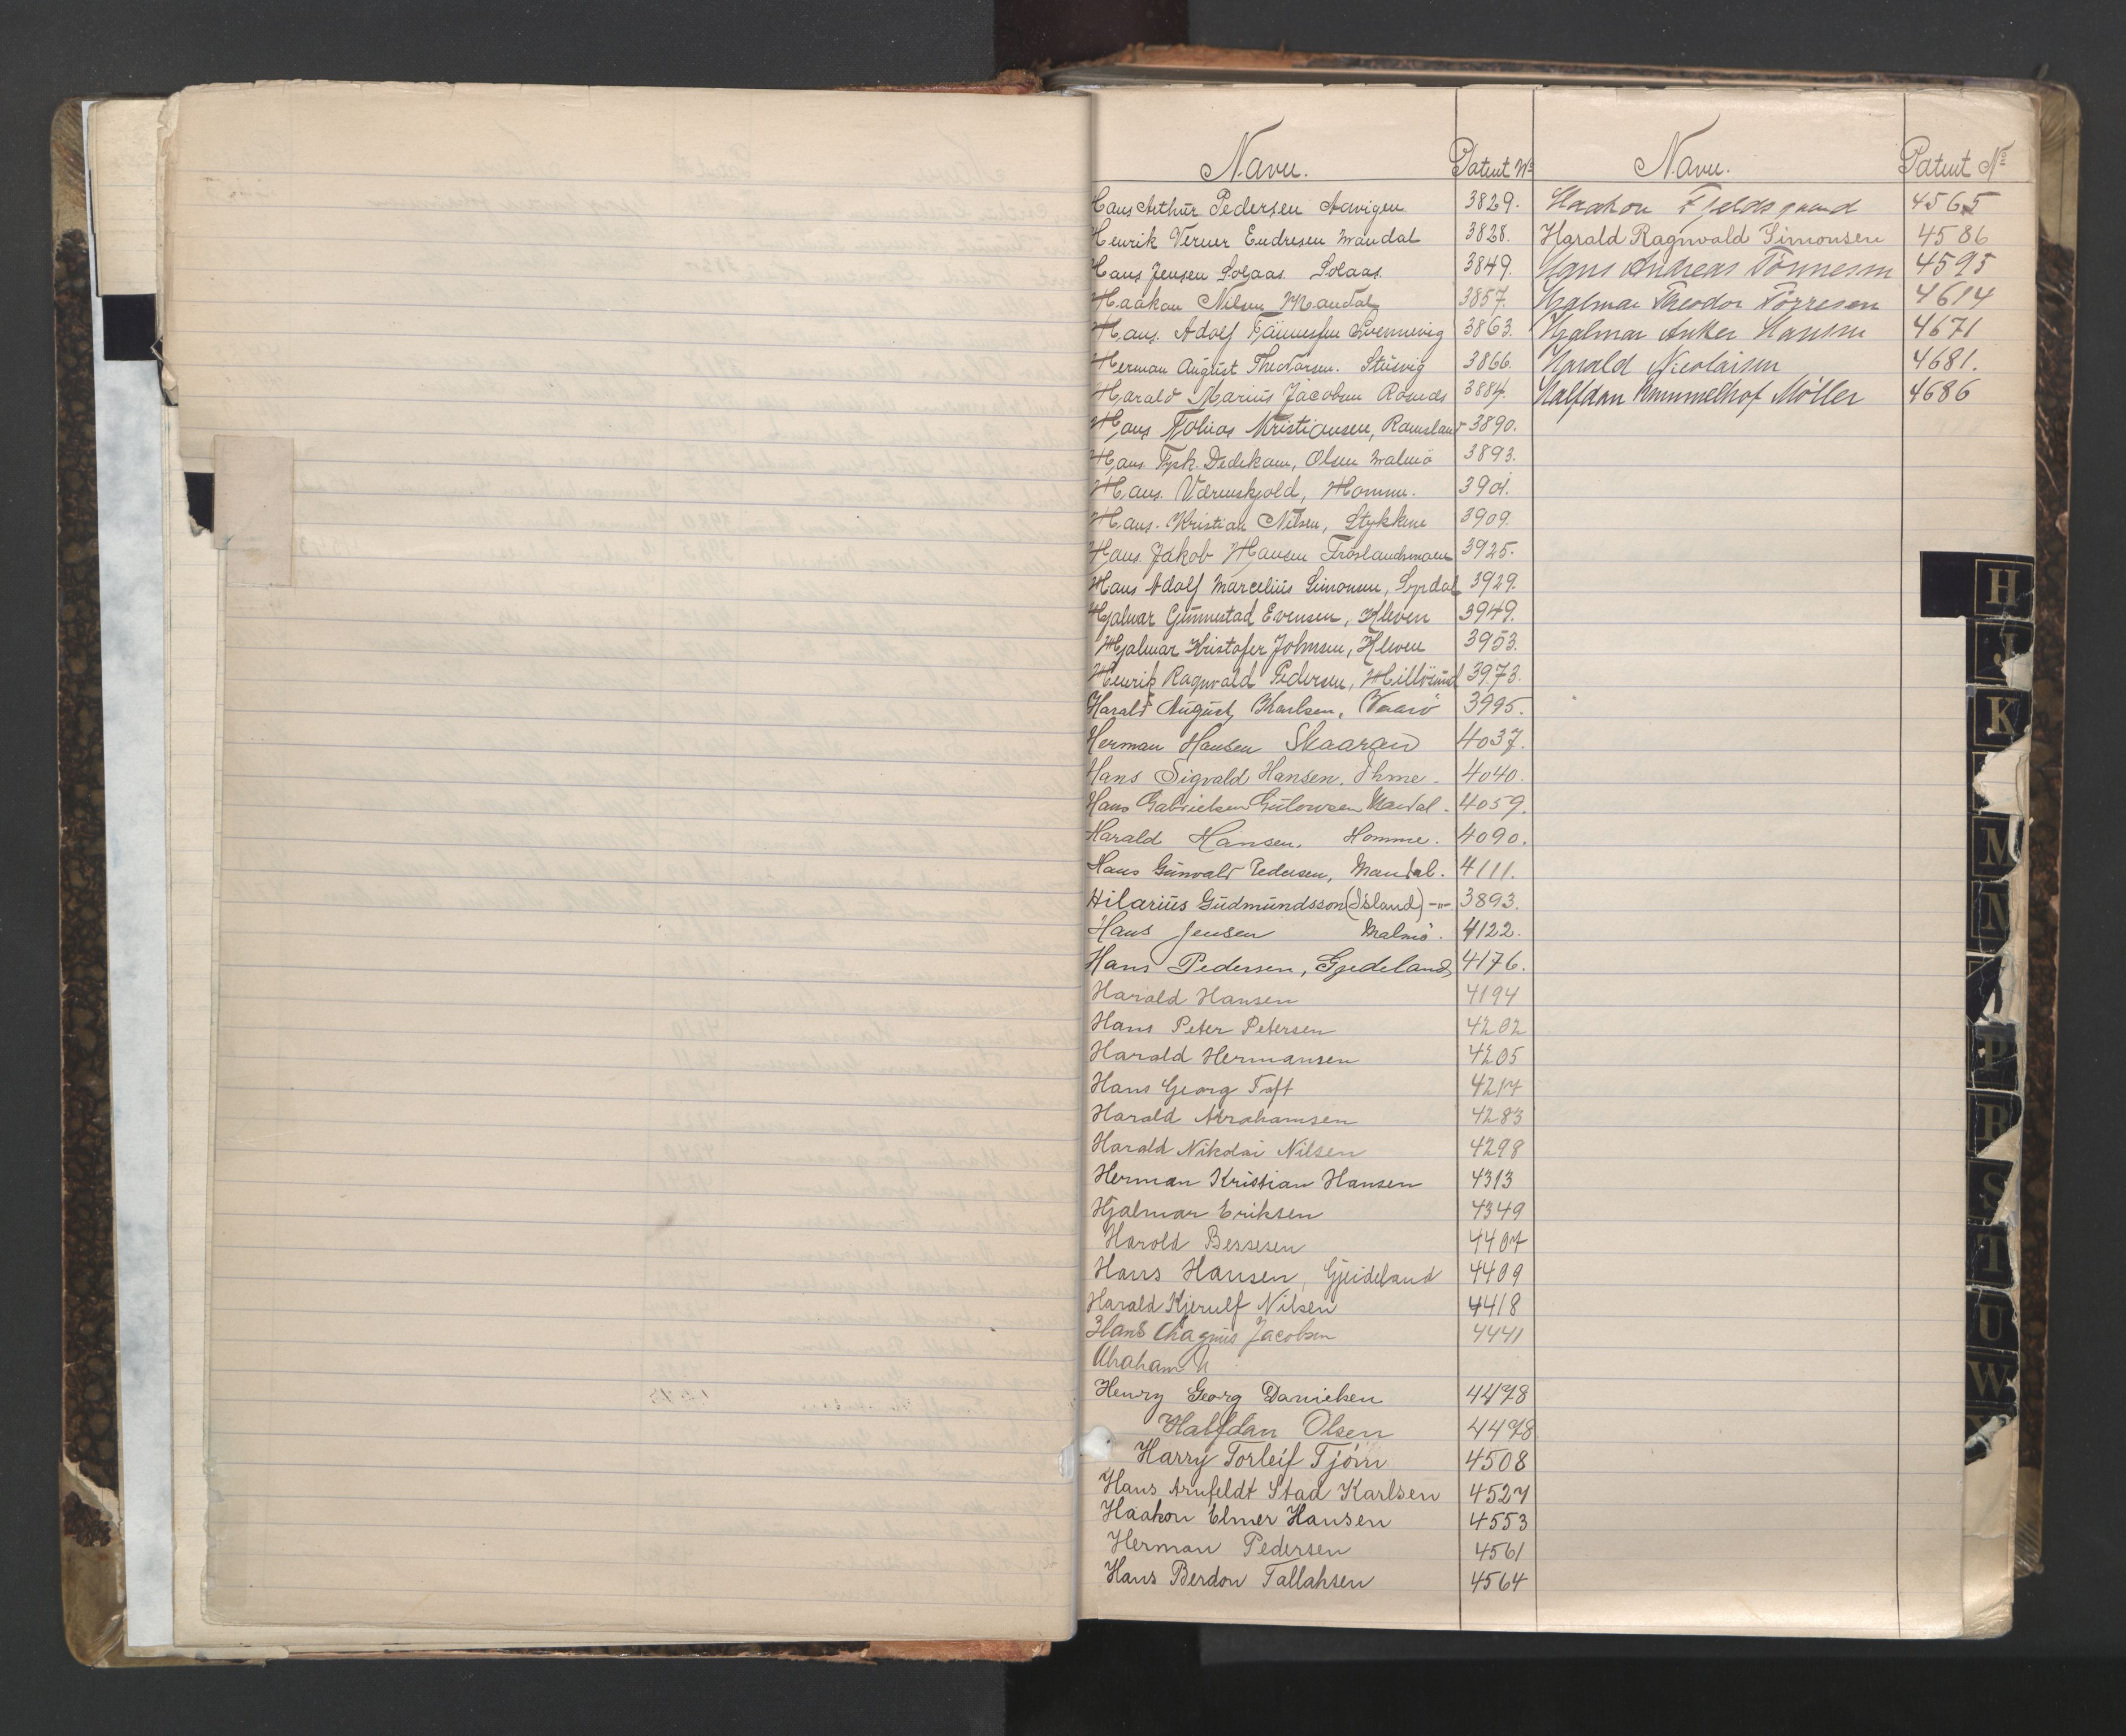 Navn. Patent No
Hans Arthur Pedersen Aavigen 3829.
Henrik Verner Endresen Mandal 3828.
Hans Jensen Solaas. Solaas. 3849.
Haakon Nilsen Mandal 3857.
Hans. Adolf Tönnessen Svennevig 3863.
Herman August Theodorsen. Stusvig 3866.
Harald Marius Jacobsen 3884.
Hans Tobias Kristiansen, Ramsland 3890.
Hans Tysk. Dedekam, Olsen Malmö 3893.
Hans. Værnskjold, Homme. 3901.
Hans. Kristian Nilsen, Stykkene 3909.
Hans. Jakob Hansen 3925.
Hans Adolf Marcelius Simonsen, Syrdal 3929.
Hjalmar Gunnestad Evensen, Kleven 3949.
Hjalmar Kristofer Johnsen, Kleven 3953.
Henrik Ragnvald Pedersen, Hillösund 3973.
Harald August Karlsen, 3995.
Herman Hansen Skaaran 4037.
Hans Sigvald Hansen. Ihme. 4040.
Hans Gabrielsen Gulowsen Mandal. 4059.
Harald Hansen. Homme. 4090.
Hans Gunvald Pedersen, Mandal. 4111.
Hilarius Gudmundsson (Island) -"- 3893.
Hans Jensen Malmö. 4122.
Hans Pedersen, Gjedeland, 4176.
Harald Hansen 4194
Hans Peter Petersen 4202
Harald Hermansen 4205
Hans Georg Toft 4217
Harald Abrahamsen 4283
Harald Nikolai Nilsen 4298
Herman Kristian Hansen 4313
Hjalmar Eriksen 4349
Harold Bessesen 4407
Hans Hansen, Gjeideland 4409
Harald Kjerulf Nilsen 4418
Hans Magnus Jacobsen 4441
Henry Georg Danielsen 4478
Halfdan Olsen 4498
Harry Torleif Tjöm 4508
Hans Arnfeldt Stad Karlsen 4527
Haakon Elmer Hansen 4553
Herman Pedersen 4561
Hans Berdon Tallaksen 4564
Navn. Patent No
Haakon Fjeldsgaard 4565
Harald Ragnvald Simonsen 4586
Hans Andreas Tönnesen 4595
Hjalmar Theodor Törresen 4614
Hjalmar Anker Hansen 4671
Harald Nicolaisen 4681.
Halfdan Hummelhof Möller 4686
H
J
K
M
N
P
R
S
T
U
W